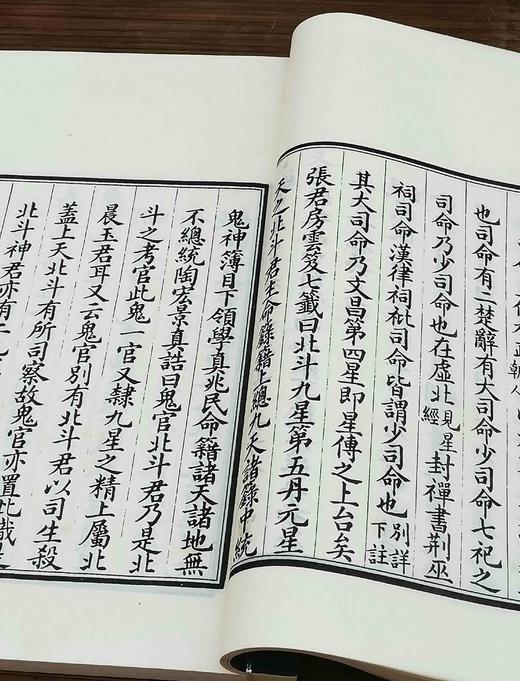 也司命有二楚辭有大司命少司命七祀之
司命乃少司命也在虛北見星經封禪書荆巫
祠司命漢律祠祉司命皆謂少司命也別詳下註
其大司命乃文昌第四星即星傳之上台矣
張君房雲笈七籤曰北斗九星第五丹元星
天之北斗君主命錄籍上總九天諸錄中統
鬼神簿目下領學真兆民命籍諸天諸地無
不總統陶宏景真誥曰鬼官北斗君乃是北
斗之考官此鬼一官又隸九星之精上屬北
晨玉君耳又云鬼官別有北斗君以司生殺
蓋上天北斗有所司察故鬼官亦置此職
北斗神君亦有二